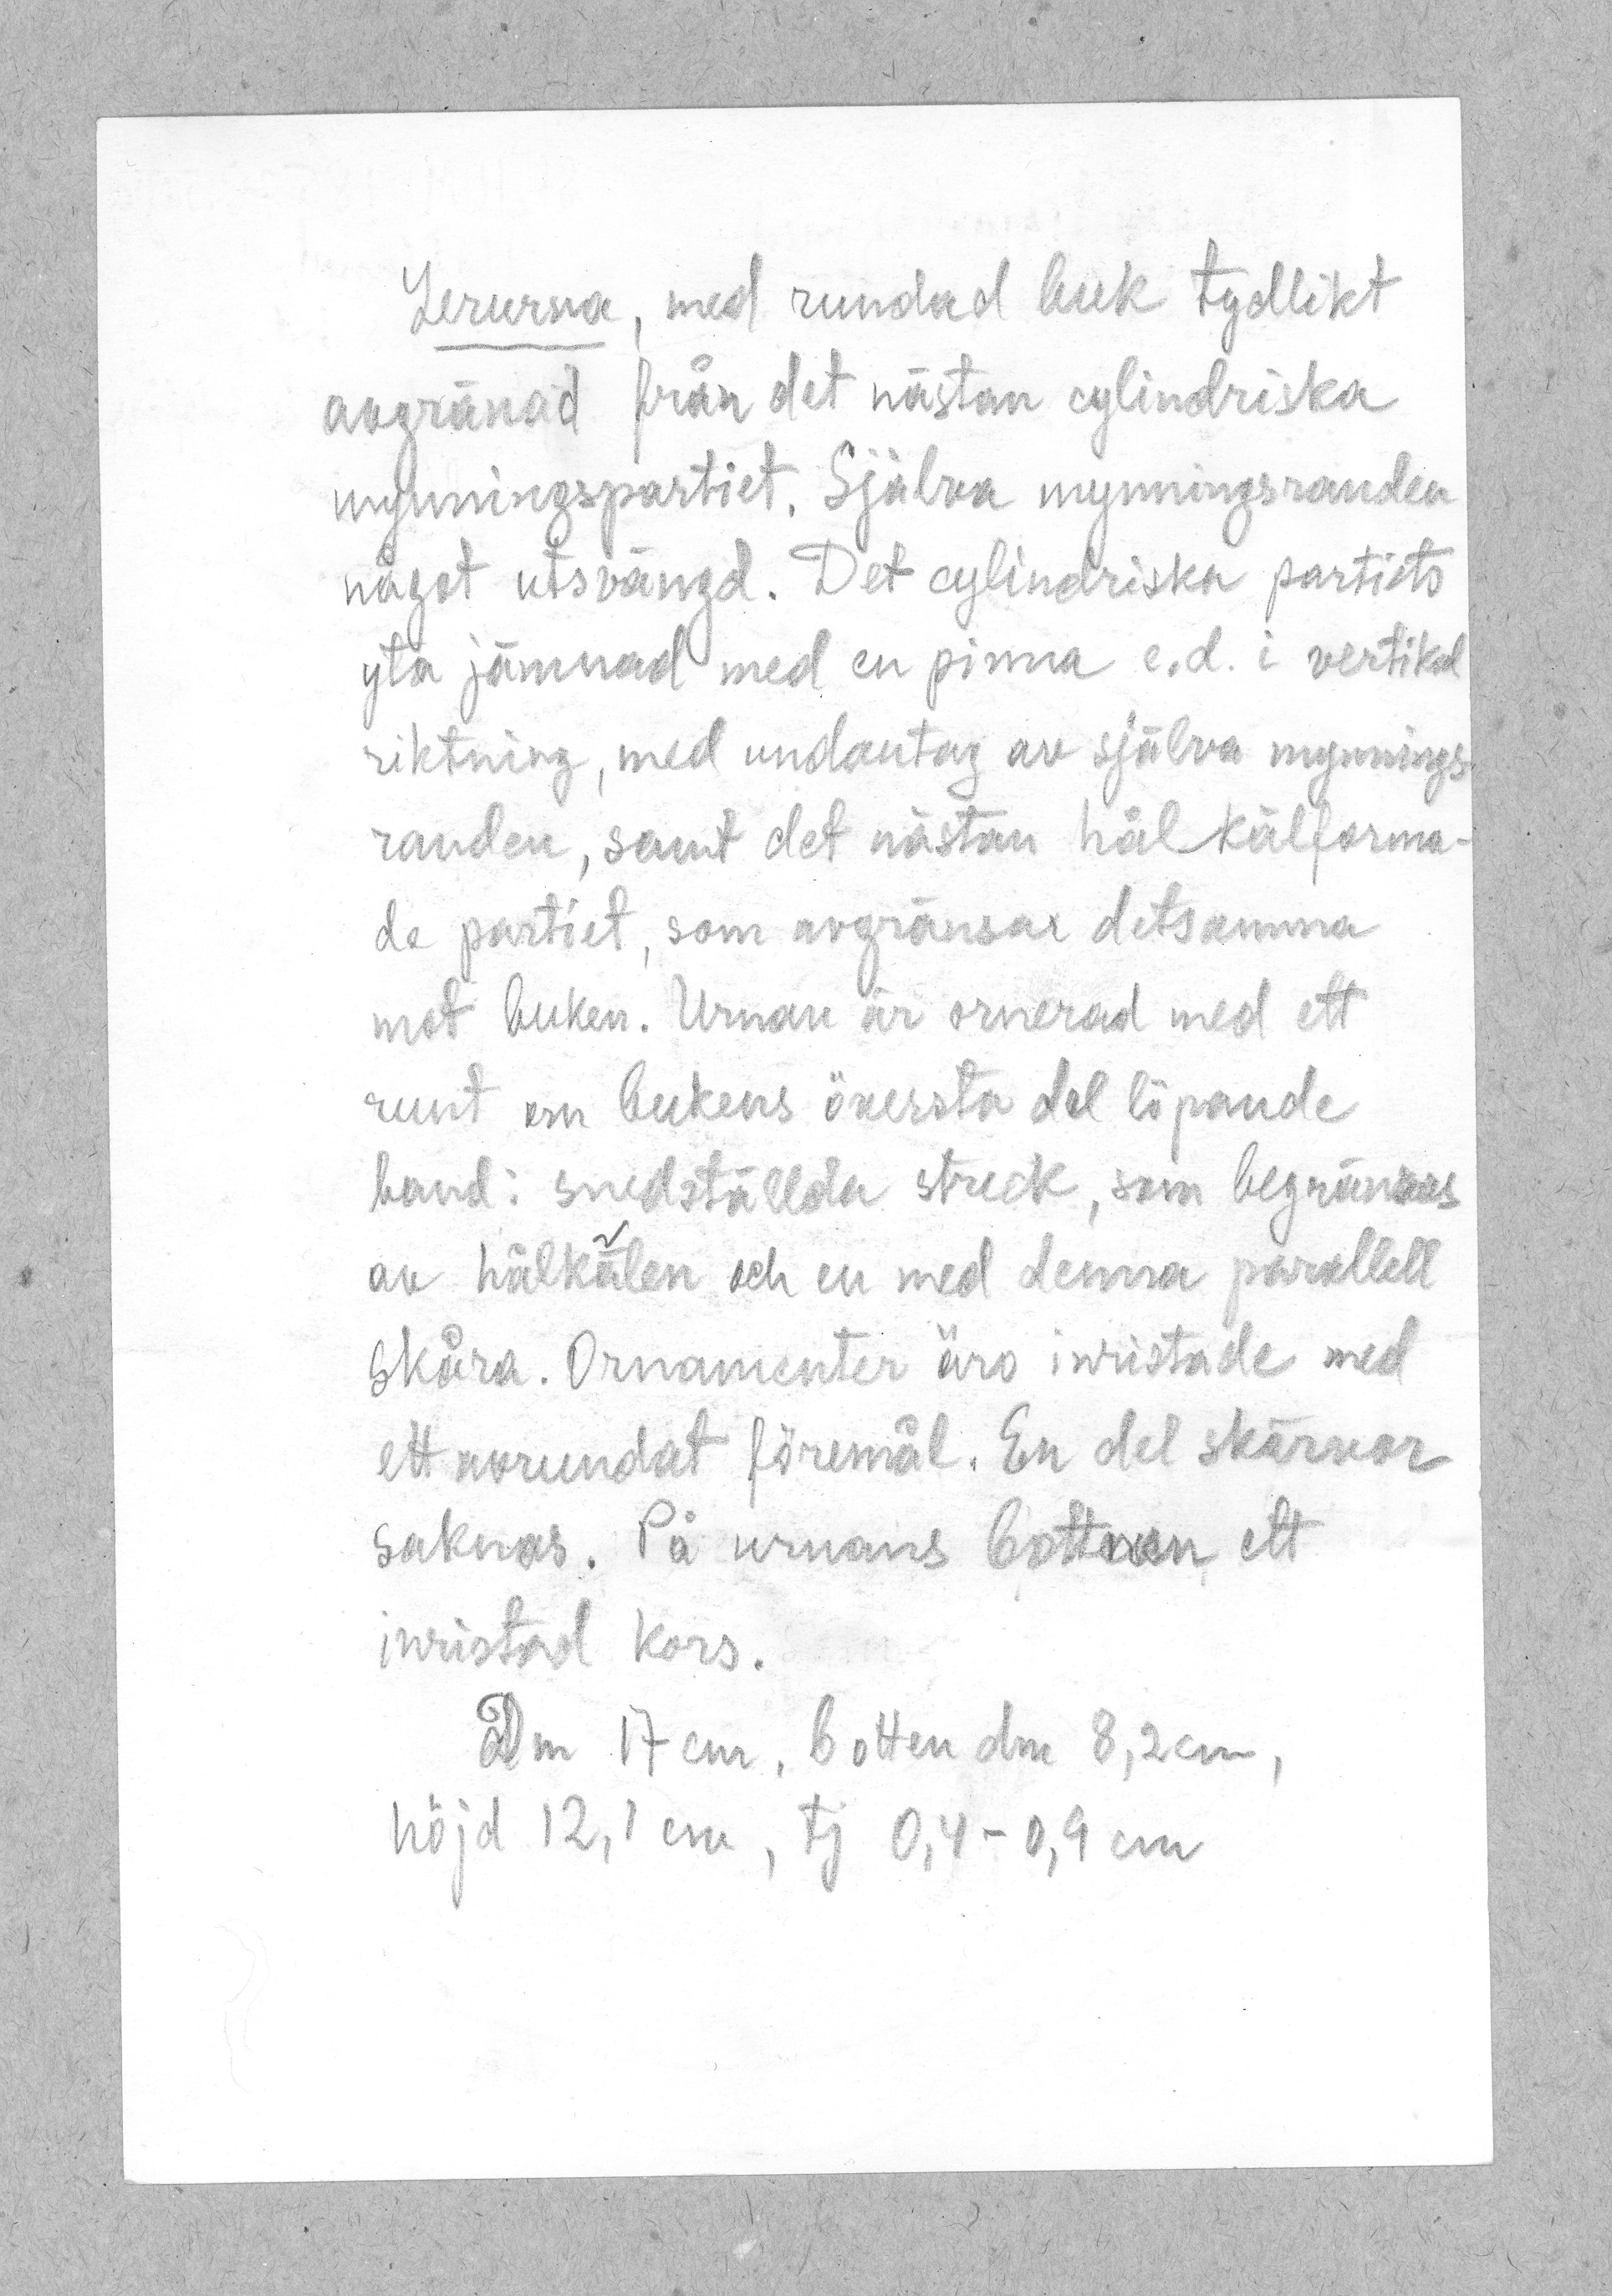 Lerurna, med rundad buk tydlikt
avgränad från det nästan cylindriska
mynningspartiet. Själva mynningsranden
något utsvängd. Det cylindriska partiets
yta jämnad med en pinna e.d. i vertikal
riktning, med undantag av själva mynnings-
randen, samt det nästan hålkälforma-
de partiet, som avgränsar detsamma
mot buken. Urnan är ornerad med ett
runt om bukens översta del löpande
band: snedställda streck, som begränsas
av hålkälen och en med denna parallell
skåra. Ornamenter äro inristade med
ett avrundat föremål. En del skärvor
saknas. På urnans bottnen ett
inristad kors.
Dm 17 cm, botten dm 8,2 cm,
höjd 12,1 cm, tj 0,4-0,9 cm